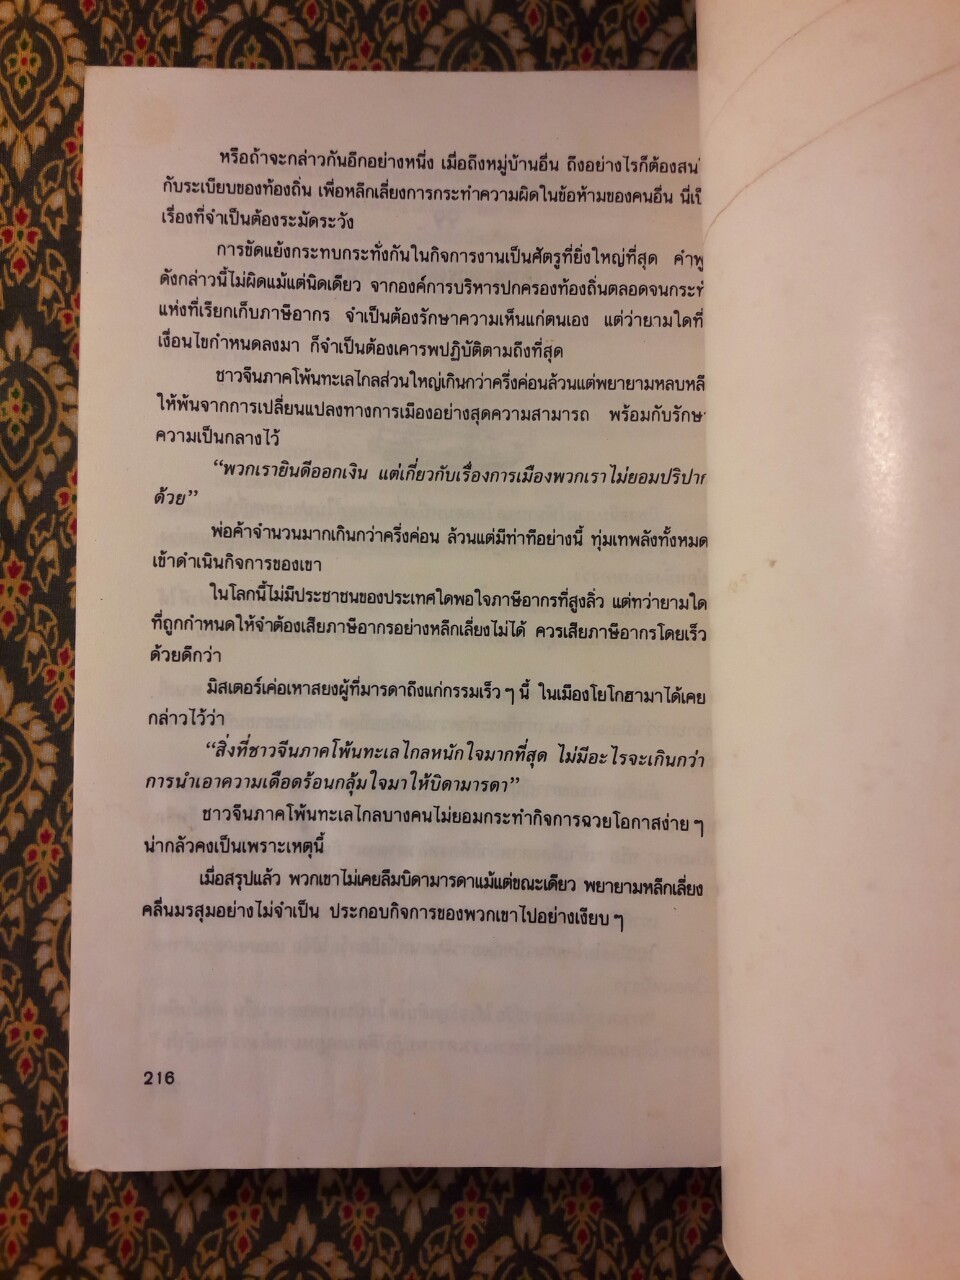 หรือถ้าจะกล่าวกันอีกอย่างหนึ่ง เมื่อถึงหมู่บ้านอื่น ถึงอย่างไรก็ต้อง
กับระเบียบของท้องถิ่น เพื่อหลีกเลี่ยงการกระทำความผิดในข้อห้ามของคนอื่น
เรื่องที่จำเป็นต้องระมัดระวัง
การขัดแย้งกระทบกระทั่งกันในกิจการงานเป็นศัตรูที่ยิ่งใหญ่ที่สุด
ดังกล่าวนี้ไม่ผิดแม้แต่นิดเดียว จากองค์การบริหารปกครองท้องถิ่นตลอดจน
แห่งที่เรียกเก็บภาษีอากร จำเป็นต้องรักษาความเห็นแก่ตนเอง แต่ว่ายามใดที่
เงื่อนไขกำหนดลงมา ก็จำเป็นต้องเคารพปฏิบัติตามถึงที่สุด
ชาวจีนภาคโพ้นทะเลไกลส่วนใหญ่เกินกว่าครึ่งค่อนล้วนแต่พยายาม
ให้พ้นจากการเปลี่ยนแปลงทางการเมืองอย่างสุดความสามารถ พร้อมกับ
ความเป็นกลางไว้
“พวกเรายินดีออกเงิน แต่เกี่ยวกับเรื่องการเมืองพวกเราไม่ยอม
ด้วย”
พ่อค้าจำนวนมากเกินกว่าครึ่งค่อน ล้วนแต่มีท่าทีอย่างนี้ ทุ่มเทพลังทั้งหมด
เข้าดำเนินกิจการของเขา
ในโลกนี้ไม่มีประชาชนของประเทศใดพอใจภาษีอากรที่สูงลิ่ว แต่ทว่ายามใด
ที่ถูกกำหนดให้จำต้องเสียภาษีอากรอย่างหลีกเลี่ยงไม่ได้ ควรเสียภาษีอากรโดยเร็ว
ด้วยดีกว่า
มิสเตอร์เค่อเหาสยงผู้ที่มารดาถึงแก่กรรมเร็ว ๆ นี้ ในเมืองโยโกฮามาได้เคย
กล่าวไว้ว่า
“สิ่งที่ชาวจีนภาคโพ้นทะเลไกลหนักใจมากที่สุด ไม่มีอะไรจะเกินกว่า
การนำเอาความเดือดร้อนกลุ้มใจมาให้บิดามารดา”
ชาวจีนภาคโพ้นทะเลไกลบางคนไม่ยอมกระทำกิจการฉวยโอกาสง่าย ๆ
น่ากลัวคงเป็นเพราะเหตุนี้
เมื่อสรุปแล้ว พวกเขาไม่เคยลืมบิดามารดาแม้แต่ขณะเดียว พยายามหลีกเลี่ยง
คลื่นมรสุมอย่างไม่จำเป็น ประกอบกิจการของพวกเขาไปอย่างเงียบ ๆ
216